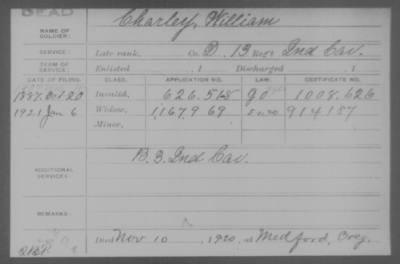 DEAD
Charley, William
NAME OF SOLDIER:
SERVICE: Late rank, Co. D, 13 Reg't Ind Cav.
TERM OF SERVICE: Enlisted , 1 Discharged , 1
DATE OF FILING. CLASS. APPLICATION NO. LAW. CERTIFICATE NO.
Oct 20 Invalid, 1008.626
1921 Jan 6 Widow, 1,167.969 914187
Minor,
ADDITIONAL SERVICES: B. 3. Ind Cav.
REMARKS:
Died Nov 10, 1920, at Medford, Oreg.